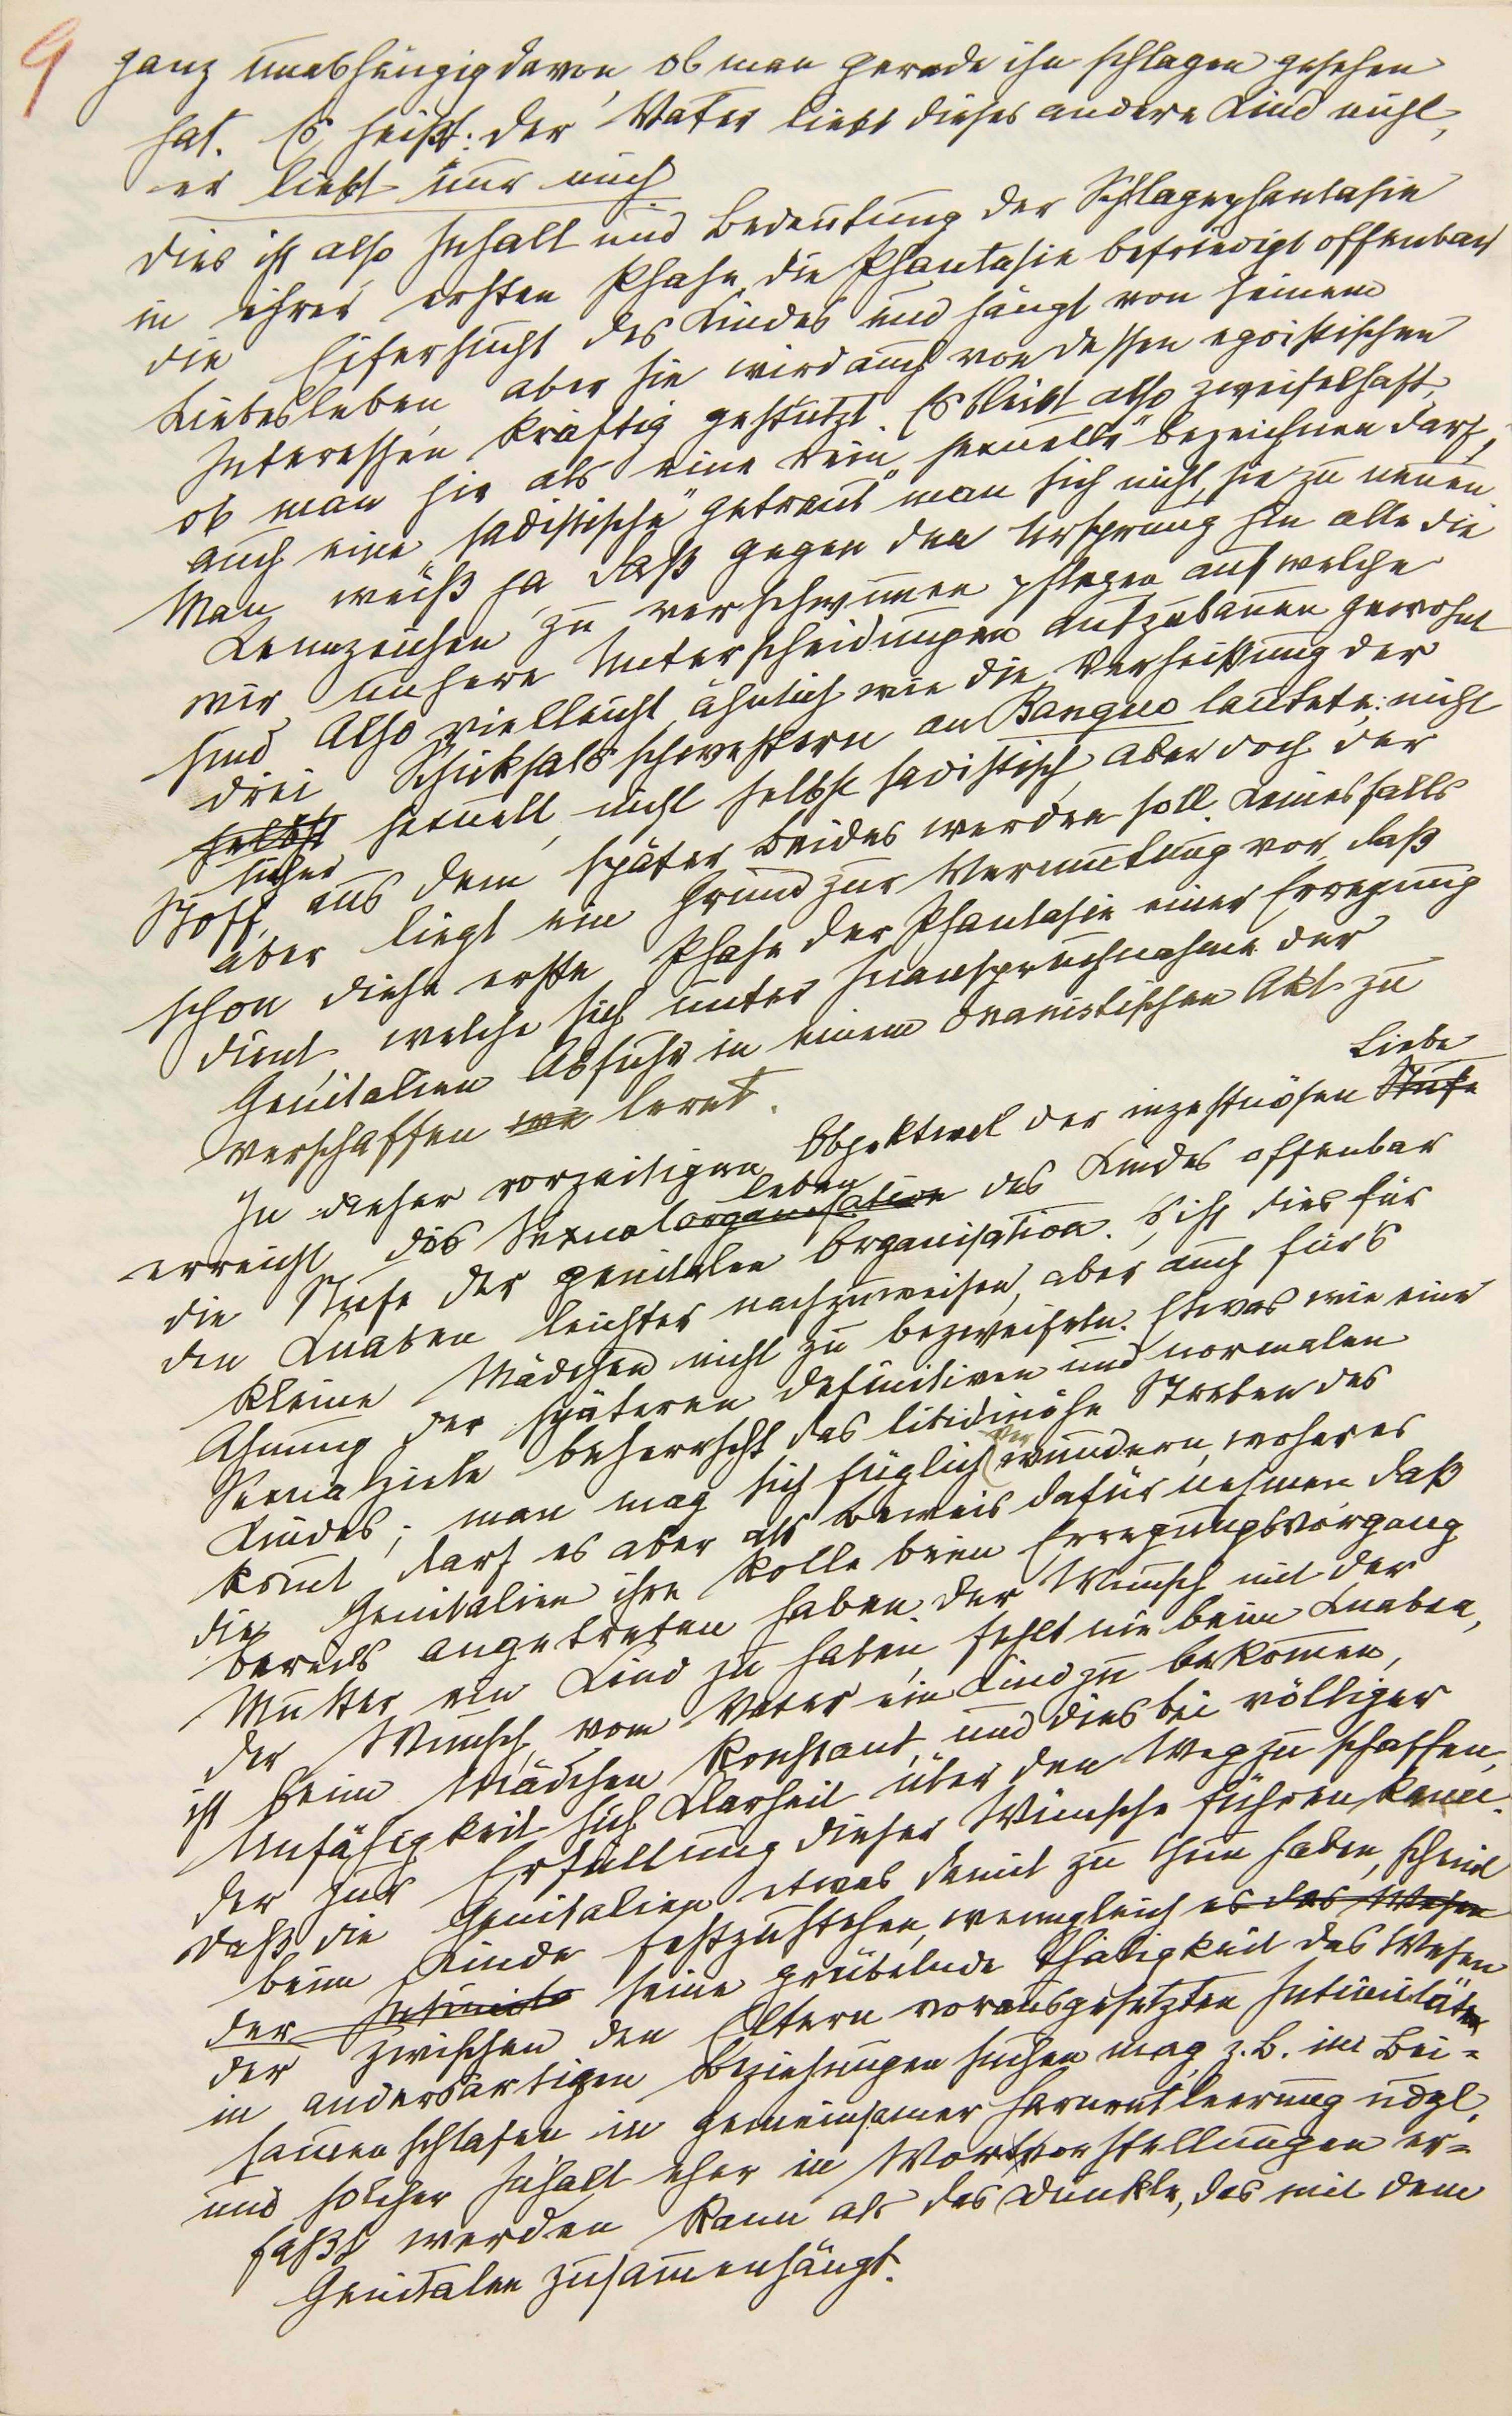 9
ganz unabhängig davon, ob man gerade ihn schlagen gesehen
hat. Es heißt: Der Vater liebt dieses andere Kind nicht,
er liebt nur mich.
Dies ist also Inhalt und Bedeutung der Schlagephantasie
in ihrer ersten Phase. Die Phantasie befriedigt offenbar
die Eifersucht des Kindes und hängt von seinem
Liebesleben, aber sie wird auch von dessen egoistischen
Interessen kräftig gestützt. Es bleibt also zweifelhaft,
ob man sie als eine rein „sexuelle“ bezeichnen darf,
auch eine „sadistische“ getraut man sich nicht, sie zu nennen
Man weiß ja, daß gegen den Ursprung hin alle die
Kennzeichen zu verschwimmen pflegen, auf welche
wir unsere Unterscheidungen aufzubauen gewohnt
sind. Also vielleicht ähnlich wie die Verheißung der
drei Schicksalsschwestern an Banquo lautete: nicht
selbst sexuell, nicht selbst sadistisch, aber doch der
sicher
Stoff, aus dem später beides werden soll. Keinesfalls
aber liegt ein Grund zur Vermutung vor, daß
schon diese erste Phase der Phantasie einer Erregung
dient, welche sich unter Inanspruchnahme der
Genitalien Abfuhr in einem onanistischen Akt zu
verschaffen lernt.
Liebe
In dieser vorzeitigen Objektwal der inzestuösen Stufe
leben
erreicht das Sexualorganisation des Kindes offenbar
die Stufe der genitalen Organisation. Es ist dies für
den Knaben leichter nachzuweisen, aber auch für's
kleine Mädchen nicht zu bezweifeln. Etwas wie eine
Ahnung der späteren definitiven und normalen
Sexualziele beherrscht das libidinöse Streben des
ver
Kindes; man mag sich füglich wundern, woher es
kommt, darf es aber als Beweis dafür nehmen, daß
die Genitalien ihre Rolle beim Erregungsvorgang
bereits angetreten haben. Der Wunsch, mit der
Mutter ein Kind zu haben, fehlt nie beim Knaben,
der Wunsch, vom Vater ein Kind zu bekommen,
ist beim Mädchen konstant, und dies bei völliger
Unfähigkeit, sich Klarheit über den Weg zu schaffen,
der zur Erfüllung dieser Wünsche führen kann.
Daß die Genitalien etwas damit zu thun haben, scheint
beim Kinde festzustehen, wenngleich es das Wesen
der Intimität seine grübelnde Thätigkeit das Wesen
der zwischen den Eltern vorausgesetzten Intimität
in andersartigen Beziehungen suchen mag, z.B. im Bei=
sammenschlafen, in gemeinsamer Harnentleerung udgl.
und solcher Inhalt eher in Wortvorstellungen er=
faßt werden kann als das Dunkle, das mit dem
Genitalen zusammenhängt.